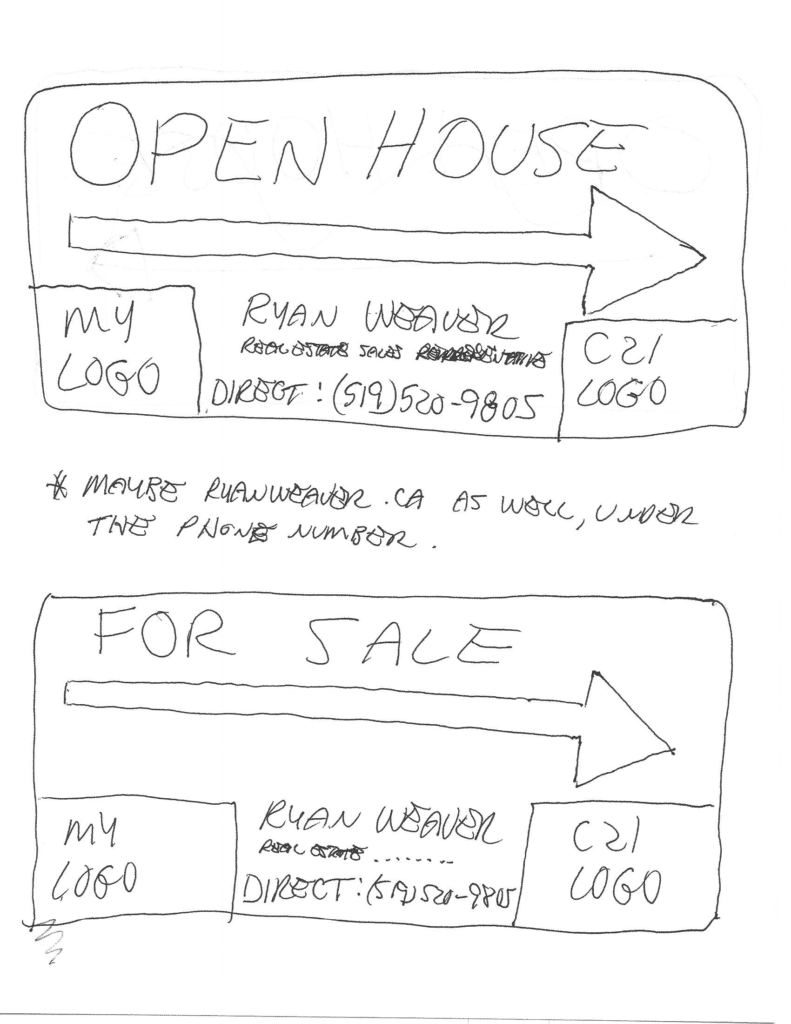 OPEN HOUSE
MY LOGO
RYAN WEAVER
REAL ESTATE SALES REPRESENTATIVE
DIRECT: (519)520-9805
C21 LOGO
* MAYBE RYANWEAVER.CA AS WELL, UNDER
THE PHONE NUMBER.
FOR SALE
MY LOGO
RYAN WEAVER
REAL ESTATE ........
DIRECT: (519)520-9805
C21 LOGO